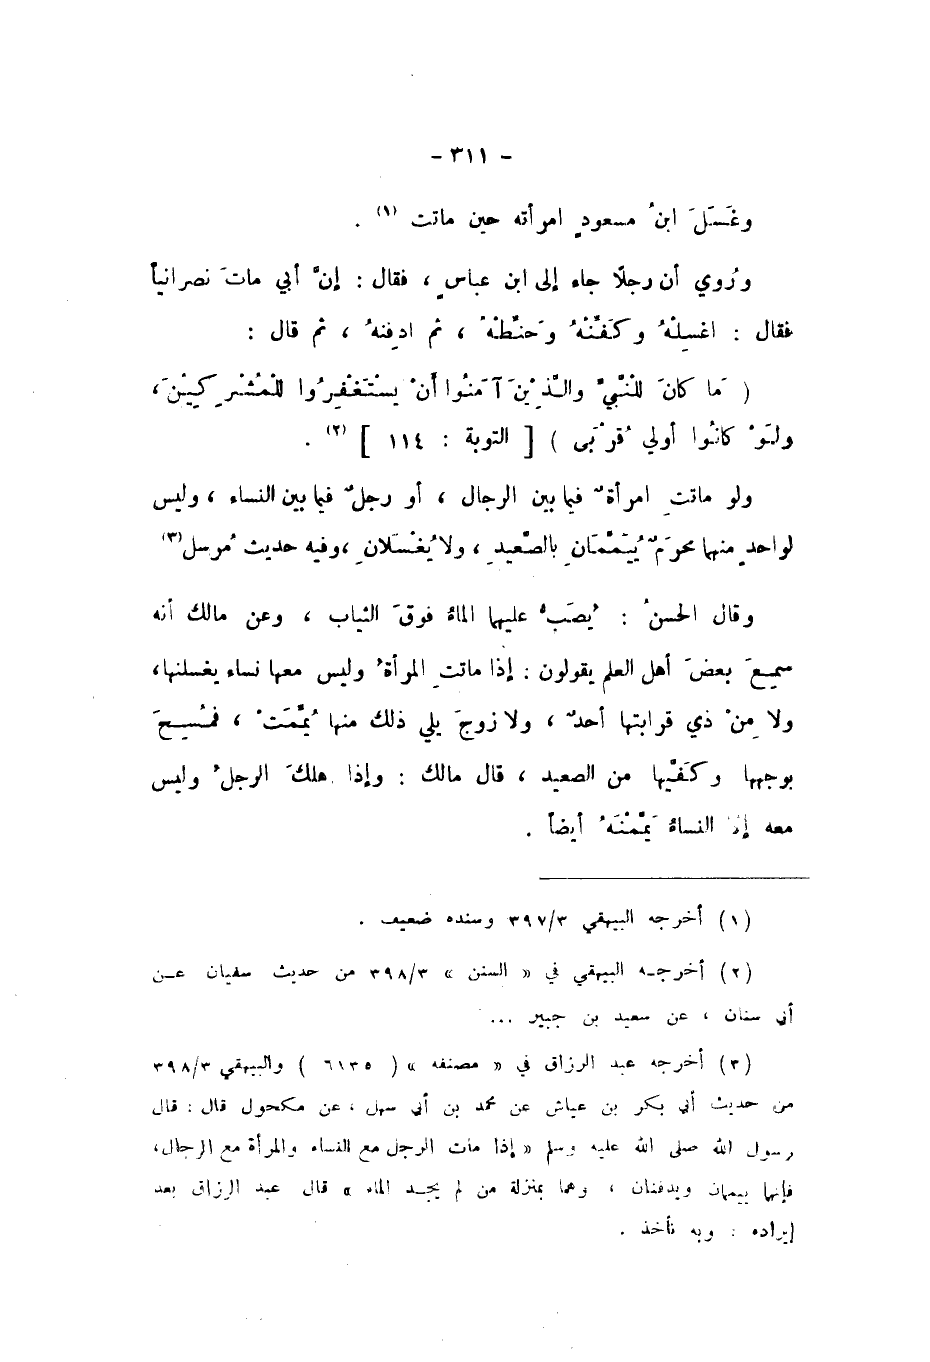 - ٣١١ -
وغَسَلَ ابنُ مسعودٍ امرأته حين ماتت (١) .
ورُوي أن رجلًا جاء إلى ابن عباسٍ ، فقال : إنَّ أبي ماتَ نصرانياً
فقال : اغسِلْهُ وكَفِّنْهُ وَحنِّطْهُ ، ثم ادفِنهُ ، ثم قال :
( مَا كانَ لِلنَّبيِّ والَّذِيْنَ آمَنُوا أَنْ يسْتَغْفِرُوا لِلْمُشْرِكِيْنَ ،
ولَوْ كانُوا أولي قُرْبَى ) [ التوبة : ١١٤ ] (٢) .
ولو ماتتِ امرأةٌ فيما بين الرجال ، أو رجلٌ فيما بين النساء ، وليس
لواحدٍ منهما محرَمٌ يُيَمَّمَانِ بالصَّعيدِ ، ولا يُغْسَلانِ ، وفيه حديث مُرسل(٣)
وقال الحسنُ : يُصَبُّ عليهما الماءُ فوقَ الثياب ، وعن مالك أنه
سمِعَ بعضَ أهل العلم يقولون : إذا ماتتِ المرأةُ وليس معها نساء يغسلنها ،
ولا مِنْ ذي قرابتها أحدٌ ، ولا زوجَ يلي ذلك منها يُمِّمَتْ ، فمُسِحَ
بوجهها وكَفَّيْها من الصعيد ، قال مالك : وإذا هلكَ الرجلُ وليس
معه إلا النساءُ يَمَّمْنَهُ أيضاً .
(١) أخرجه البيهقي ٣٩٧/٣ وسنده ضعيف .
(٢) أخرجـه البيهقي في « السنن » ٣٩٨/٣ من حديث سفيان عـن
أبي سنان ، عن سعيد بن جبير ...
(٣) أخرجه عبد الرزاق في « مصنفه » ( ٦١٣٥ ) والبيهقي ٣٩٨/٣
من حديث أبي بكر بن عياش عن محمد بن أبي سهل ، عن مكحول قال : قال
رسول الله صلى الله عليه وسلم « إذا مات الرجل مع النساء والمرأة مع الرجال ،
فإنهما ييممان ويدفنان ، وهما بمنزلة من لم يجـد الماء » قال عبد الرزاق بعد
إيراده : وبه نأخذ .